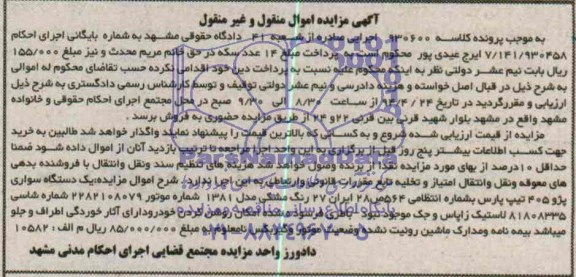 آگهی مزایده اموال منقول و غیر منقول
به موجب پرونده کلاسه ۹۳۰۶۰۰ اجرایی صادره از شعبه ۴۱ دادگاه حقوقی مشهد به شماره بایگانی اجرای احکام
۷/۱۴۱/۹۳۰۴۵۸ ایرج عیدی پور محکوم است به پرداخت مبلغ ۱۴ عدد سکه در حق خانم مریم محدث و نیز مبلغ ۱۵۵/۰۰۰
ریال بابت نیم عشر دولتی نظر به اینکه محکوم علیه نسبت به پرداخت دین خود اقدامی نکرده حسب تقاضای محکوم له اموالی
به شرح ذیل در قبال اصل خواسته و هزینه دادرسی و نیم عشر دولتی توقیف و توسط کارشناس رسمی دادگستری به شرح ذیل
ارزیابی و مقررگردید در تاریخ ۹۴/۴/۲۴ از ساعت ۸/۳۰ الی ۹/۳۰ صبح در محل مجتمع اجرای احکام حقوقی و خانواده
مشهد واقع در مشهد بلوار شهید قرنی بین قرنی ۲۲ و ۲۴ از طریق مزایده حضوری به فروش برسد.
مزایده از قیمت ارزیابی شده شروع و به کسانی که بالاترین قیمت را پیشنهاد نمایند واگذار خواهد شد طالبین به خرید
جهت کسب اطلاعات بیشتر پنج روز قبل از برگزاری به این واحد اجرا مراجعه تا ترتیب بازدید آنان از اموال داده شود ضمنا
حداقل ۱۰ درصد از بهای مورد مزایده نقدا از برنده وصول خواهد شد هزینه های تنظیم سند ونقل وانتقال با فروشنده بدهی
های معوقه ونقل وانتقال امتیاز و تخلیه تابع مقررات قانونی وارتباطی به این اجرا ندارد. شرح اموال مزایده:یک دستگاه سواری
پژو ۴۰۵ تیپ پارس بشماره انتظامی ۵۶۴ص۲۸ ایران ۲۷ رنگ مشکی مدل ۱۳۸۱ شماره موتور ۲۲۸۲۱۰۸۰۷۹ شماره شاسی
۸۱۸۰۸۳۳۵ لاستیک زاپاس و جک موجود نبود باطری فرسوده
میباشد بیمه نامه ومدارک ماشین رویت نشده وضعیت موتور وگیربکس نامعلوم به مبلغ ۸۵/۰۰۰/۰۰۰ ریال م الف: ۱۰۵۸۲
دادورز واحد مزایده مجتمع قضایی اجرای احکام مدنی مشهد